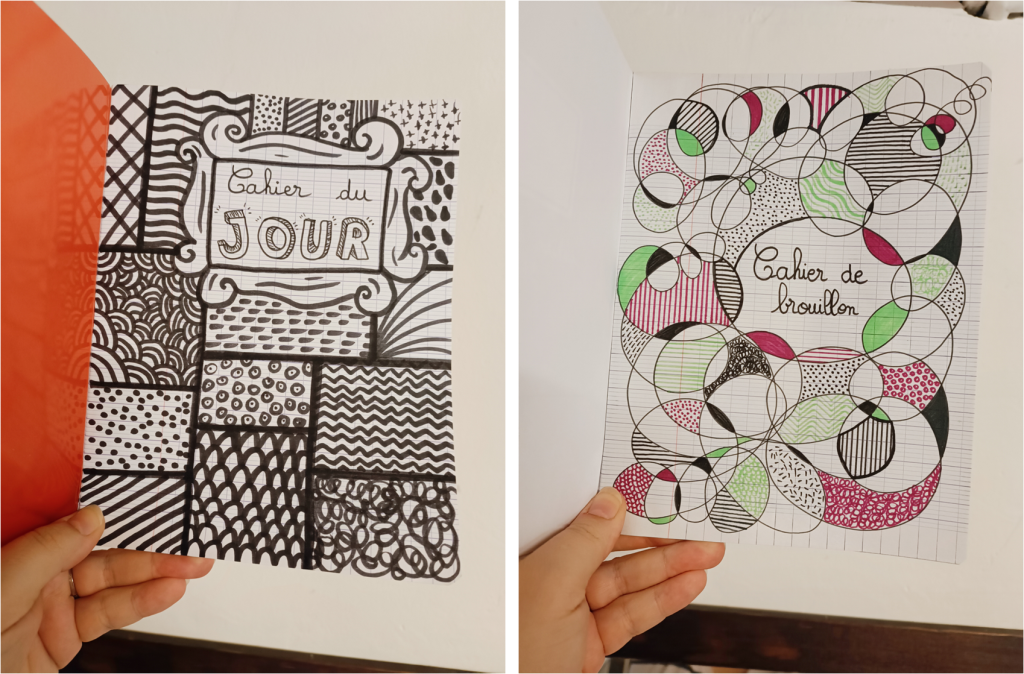 Cahier du
JOUR
Cahier de
brouillon